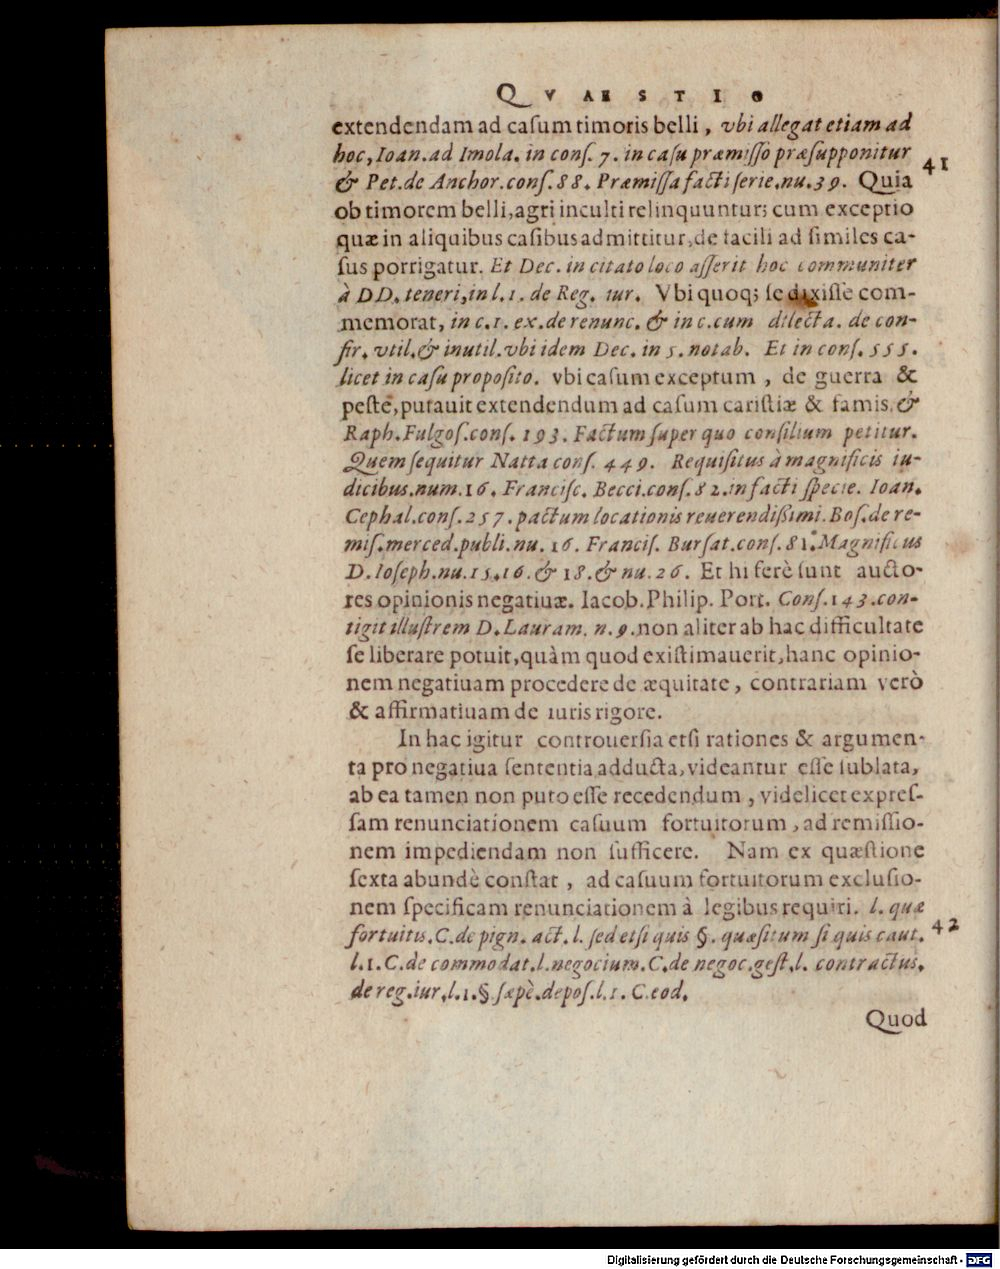 QVÆSTIO
extendendam ad caſum timoris belli, vbi allegat etiam ad
hoc, Ioan. ad Imola. in conſ. 7. in caſu præmiſſo præſupponitur
& Pet. de Anchor. conſ. 88. Præmiſſa facti ſerie. nu. 39. Quia
41
ob timorem belli, agri inculti relinquuntur; cum exceptio
quæ in aliquibus caſibus admittitur, de facili ad ſimiles ca-
ſus porrigatur. Et Dec. in citato loco aſſerit hoc communiter
à DD. teneri, in l. 1. de Reg. iur. Vbi quoq; ſe dixiſſe com-
memorat, in c. 1. ex. de renunc. & in c. cum dilecta. de con-
fir. vtil. & inutil. vbi idem Dec. in 5. notab. Et in conſ. 555.
licet in caſu propoſito. vbi caſum exceptum, de guerra &
peſte, putauit extendendum ad caſum cariſtiæ & famis. &
Raph. Fulgoſ. conſ. 193. Factum ſuper quo conſilium petitur.
Quem ſequitur Natta conſ. 449. Requiſitus à magnificis iu-
dicibus. num. 16. Franciſc. Becci. conſ. 82. in facti ſpecie. Ioan.
Cephal. conſ. 257. pactum locationis reuerendißimi. Boſ. de re-
miſ. merced. publi. nu. 16. Franciſ. Burſat. conſ. 81. Magnificus
D. Ioſeph. nu. 15. 16. & 18. & nu. 26. Et hi ferè ſunt aucto-
res opinionis negatiuæ. Iacob. Philip. Port. Conſ. 143. con-
tigit illuſtrem D. Lauram. n. 9. non aliter ab hac difficultate
ſe liberare potuit, quàm quod exiſtimauerit, hanc opinio-
nem negatiuam procedere de æquitate, contrariam verò
& affirmatiuam de iuris rigore.
In hac igitur controuerſia etſi rationes & argumen-
ta pro negatiua ſententia adducta, videantur eſſe ſublata,
ab ea tamen non puto eſſe recedendum, videlicet expreſ-
ſam renunciationem caſuum fortuitorum, ad remiſſio-
nem impediendam non ſufficere. Nam ex quæſtione
ſexta abundè conſtat, ad caſuum fortuitorum excluſio-
nem ſpecificam renunciationem à legibus requiri. l. quæ
fortuitis. C. de pign. act. l. ſed etſi quis §. quæſitum ſi quis caut.
42
l. 1. C. de commodat. l. negocium. C. de negoc. geſt. l. contractus.
de reg. iur. l. 1. §. ſæpè. depoſ. l. 1. C. eod.
Quod
Digitalisierung gefördert durch die Deutsche Forschungsgemeinschaft - DFG